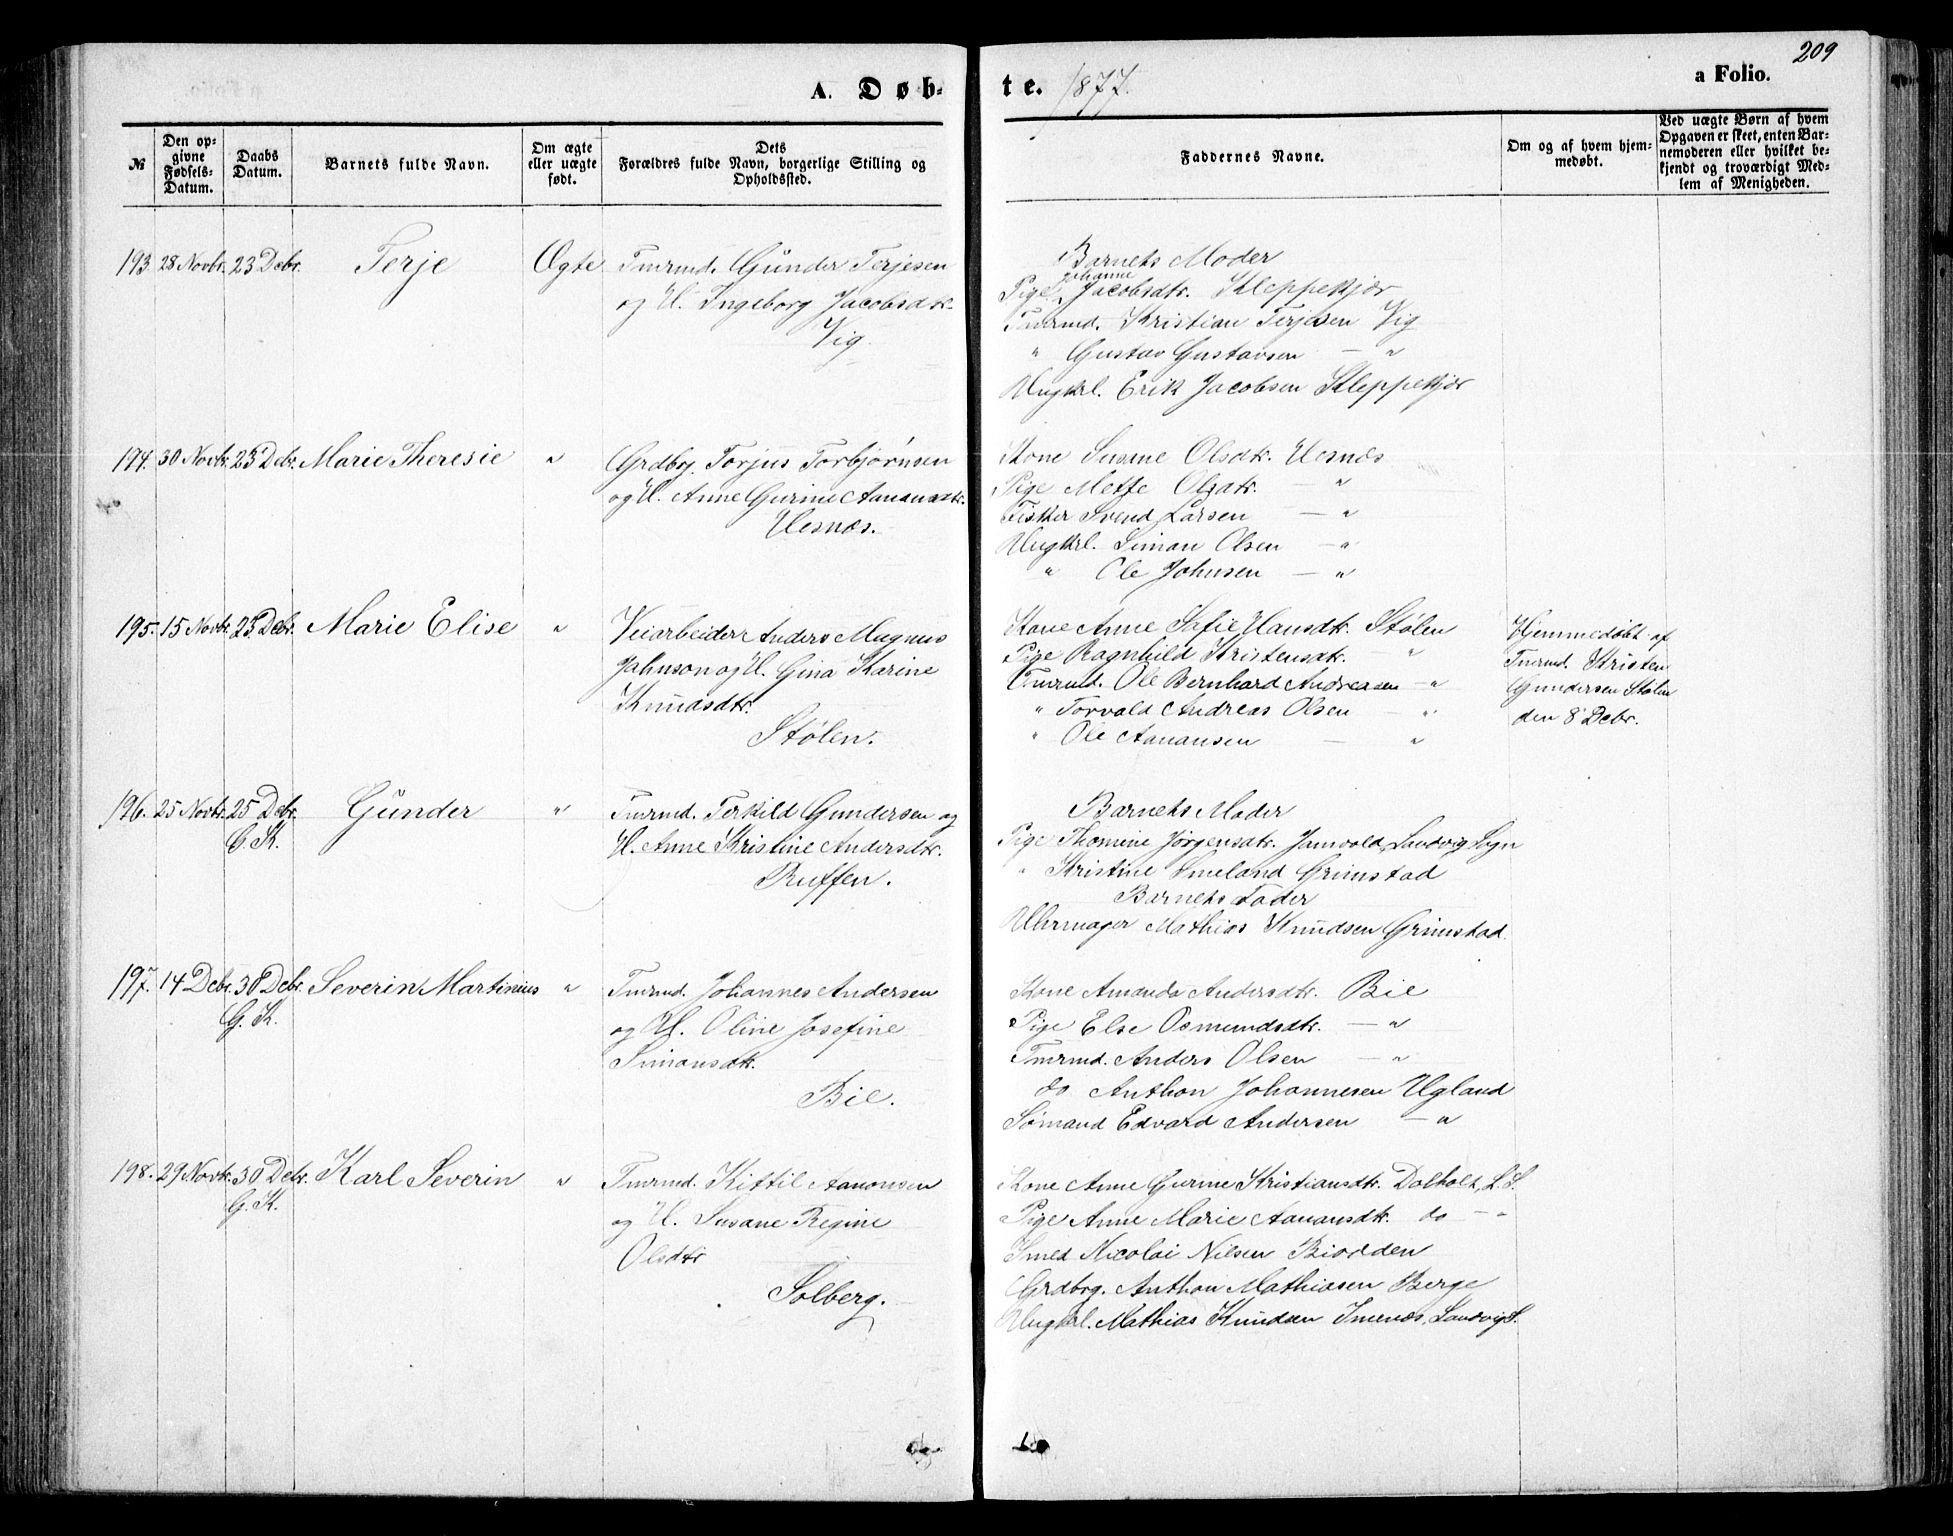 209
A. Døb-
te. 1877.
a Folio.
№
Den op-
givne
Fødsels-
Datum.
Daabs
Datum.
Barnets fulde Navn.
Om ægte
eller uægte
født.
Dets
Forældres fulde Navn, borgerlige Stilling og
Opholdssted.
Faddernes Navne.
Om og af hvem hjem-
medøbt.
Ved uægte Børn af hvem
Opgaven er skeet, enten Bar-
nemoderen eller hvilket be-
kjendt og troværdigt Med-
lem af Menigheden.
193. 28 Novbr. 23 Debr. Terje Ægte Tmrmd. Gunder Terjesen
og H. Ingeborg Jacobsdtr.
Vig.
Barnets Moder
Johanne
Pige Jacobsdtr. Kleppekjær
Tmrmd. Kristian Terjesen Vig
" Gustav Gustavsen — "
Ungkrl. Erik Jacobsen Kleppekjær
194. 30 Novbr. 23 Debr. Marie Theresie " Grdbrg. Torjus Torbjørnsen
og H. Anne Gurine Aanansdtr.
Hesnæs.
Kone Susane Olsdtr. Hesnæs
Pige Mette Olsdtr. — "
Fisker Svend Larsen — "
Ungkrl. Simon Olsen — "
" Ole Johnsen — "
195. 15 Novbr. 23 Debr. Marie Elise " Veiarbeider Anders Magnus
Johnson og H. Gina Karine
Knudsdtr.
Stølen.
Kone Anne Sofie Hansdtr. Stølen
Pige Ragnhild Kristensdtr. "
Tmrmd. Ole Bernhard Andreasen — "
" Torvald Andreas Olsen — "
" Ole Aanansen — "
Hjemmedøbt af
Tmrmd. Kristen
Gundersen Stølen
den 8 Debr.
196. 25 Novbr. 25 Debr. Gunder " Tmrmd. Terkild Gundersen og
G. K.
H. Anne Kristine Andersdtr.
Ruffen.
Barnets Moder
Pige Thomine Jørgensdtr. Jamvold, Landvig Sogn
" Kristine Smeland Grimstad
Barnets Fader
Uhrmager Mathias Knudsen Grimstad.
197. 14 Debr. 30 Debr. Severin Martinius " Tmrmd. Johannes Andersen
G. K.
og H. Oline Josefine
Simonsdtr.
Bie.
Kone Amanda Andersdtr. Bie
Pige Else Osmundsdtr. — "
Tmrmd. Anders Olsen — "
do Anthon Johannesen Ugland
Sømand Edvard Andersen — "
198. 29 Novbr. 30 Debr. Karl Severin " Tmrmd. Kittil Aanonsen
G. K.
og H. Susane Regine
Olsdtr
Solberg.
Kone Anne Gurine Kristiansdtr. Dolholt, L. S.
Pige Anne Marie Aanansdtr. do — "
Smed Nicolai Nilsen
Grdbrg. Anthon Mathiasen Berge
Ungkrl. Mathias Knudsen Imenæs, Landvig S.